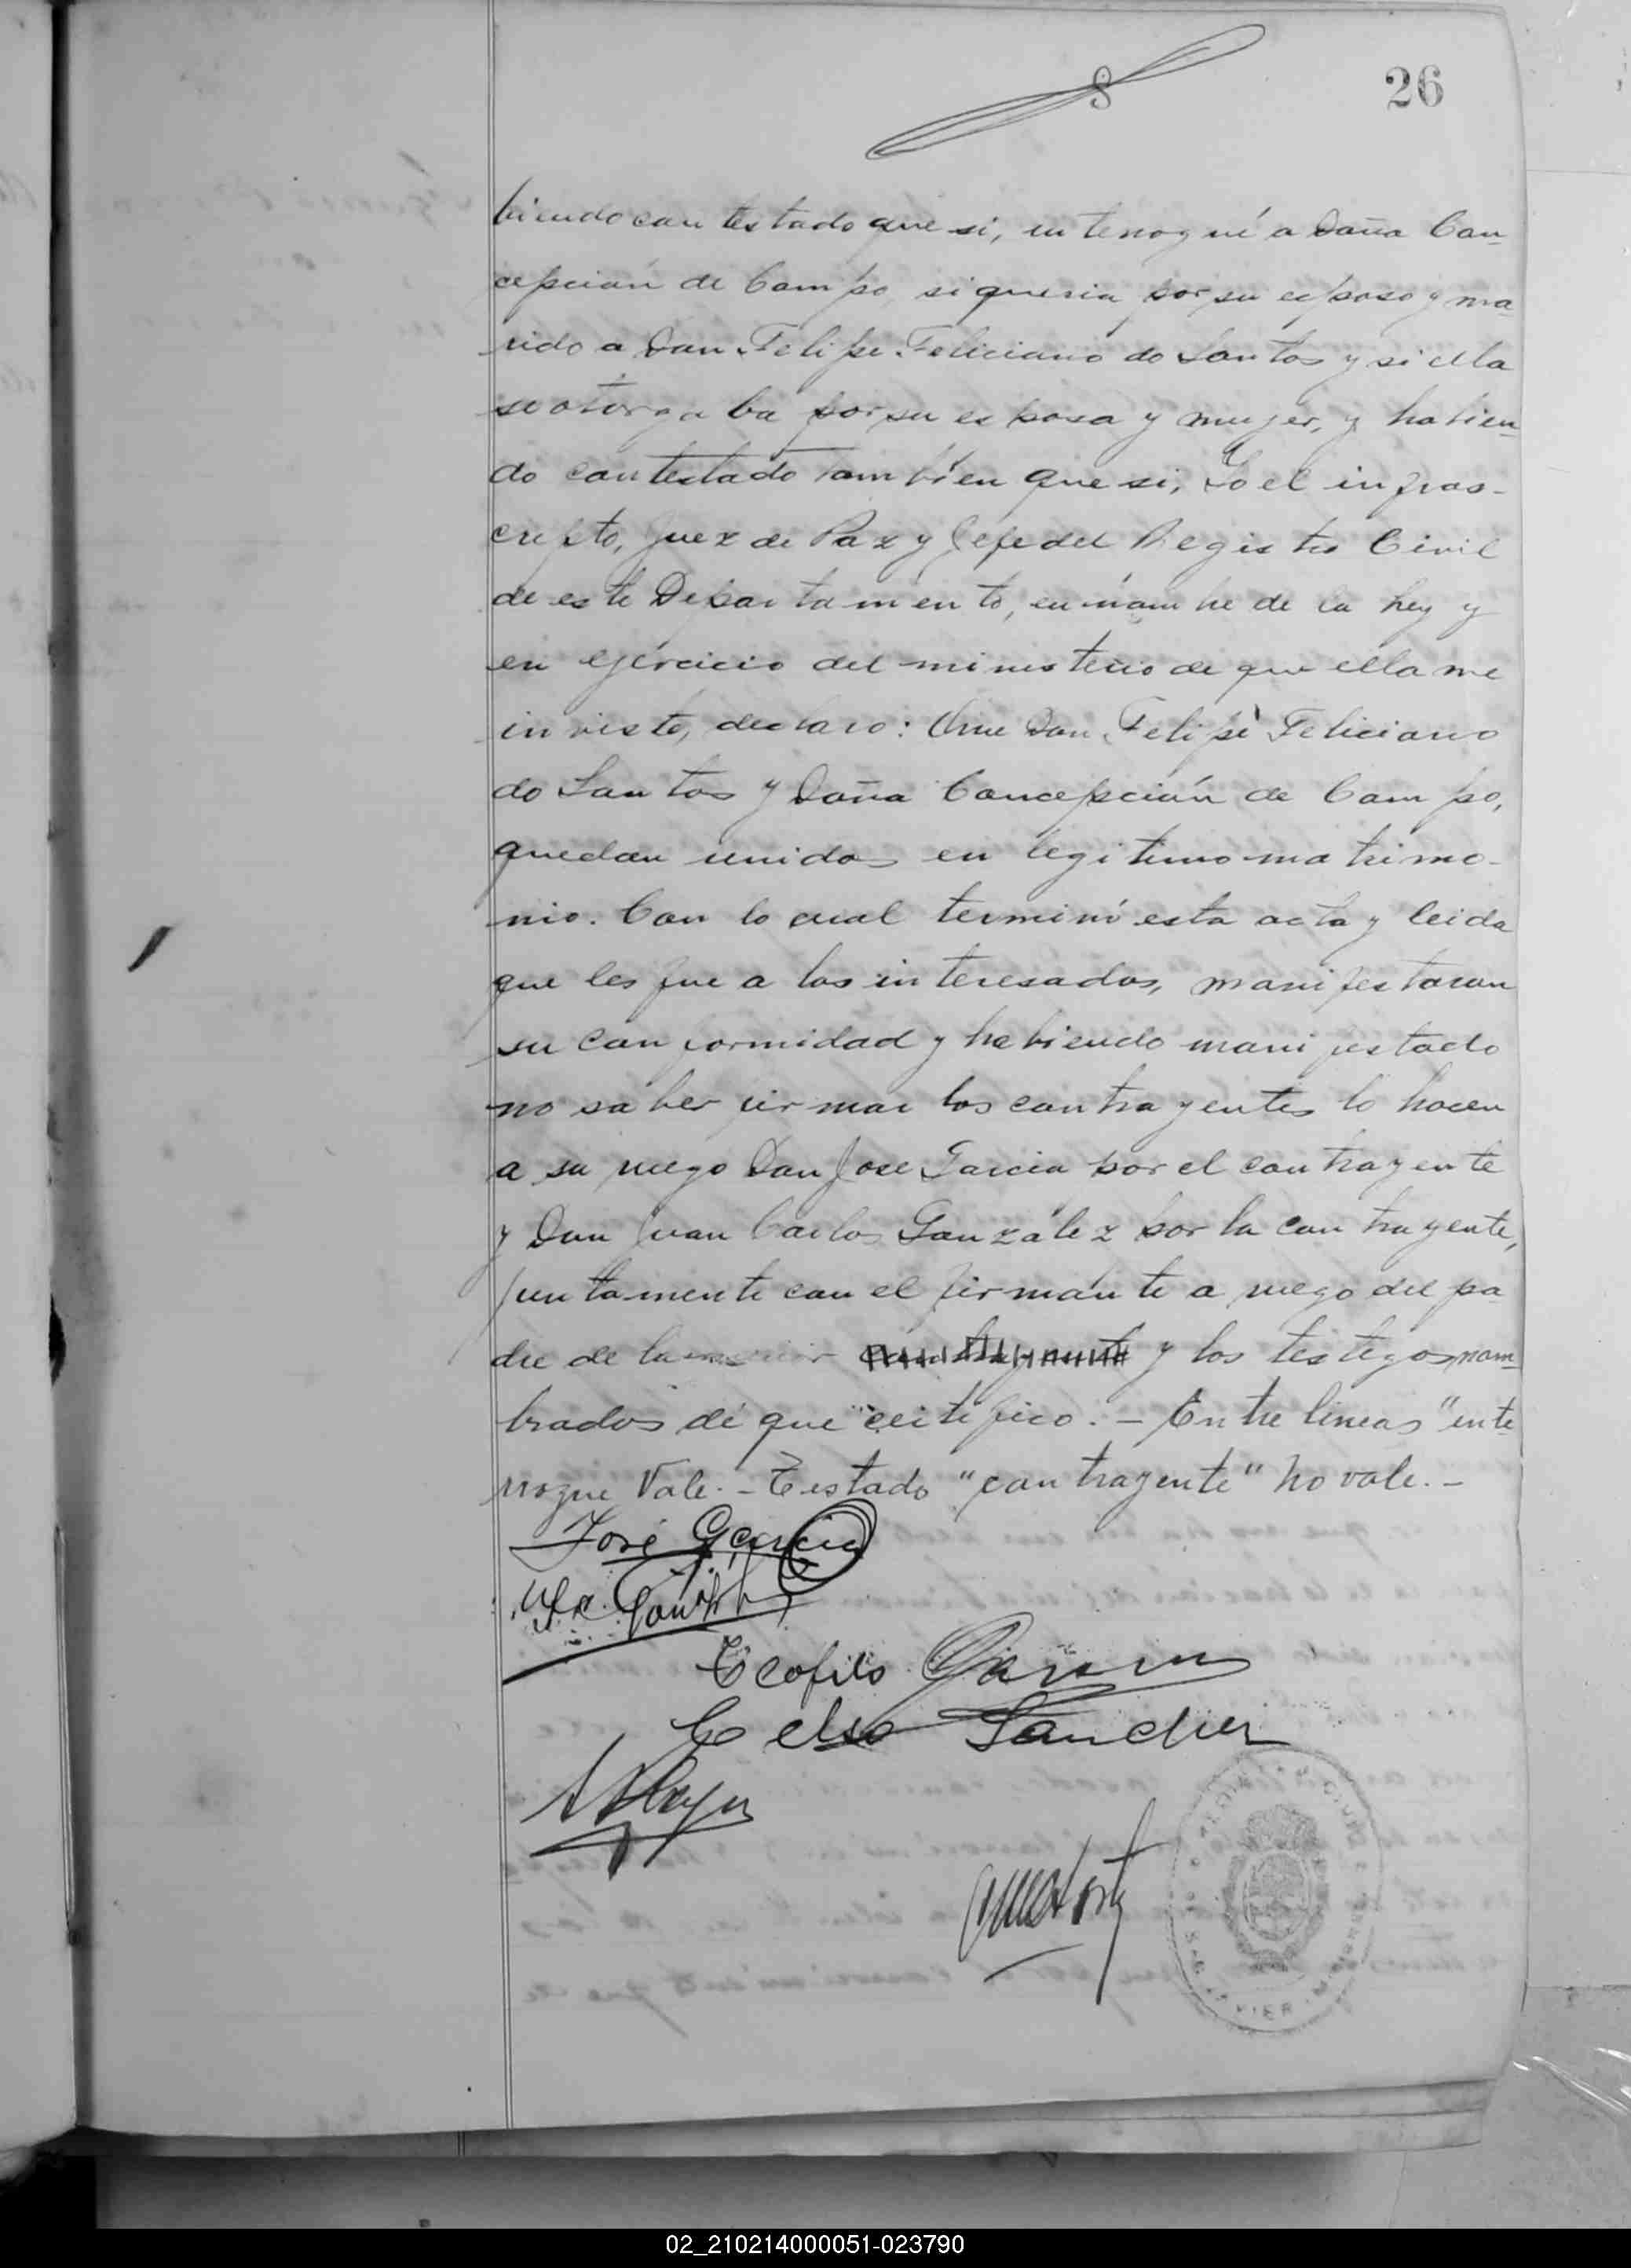 8
26
biendo contestado que si, interrogué a Doña Con-
cepción de Campo si queria por su esposo y ma-
rido a Don Felipe Feliciano do Santos y si ella
se otorgaba por su esposa y mujer, y habien-
do contestado tambien que si, Yo el infras-
cripto, Juez de Paz y Jefe del Registro Civil
de este Departamento, en nombre de la ley y
en ejercicio del ministerio de que ella me
inviste, declaro: Que Don Felipe Feliciano
do Santos y Doña Concepción de Campo,
quedan unidos en legitimo matrimo-
nio. Con lo cual terminó esta acta y leida
que les fue a los interesados, manifestaron
su conformidad y habiendo manifestado
no saber firmar los contrayentes lo hacen
a su ruego Don Jose Garcia por el contrayente
y Don Juan Carlos González por la contrayente,
juntamente con el firmante a ruego del pa-
dre de la menor contrayente y los testigos nom-
brados de que certifico. - Entre lineas "inte
rrogue Vale. - Testado "contrayente" no vale. -
José Garcia
Teofilo
Celso Sanchez
02_210214000051-023790